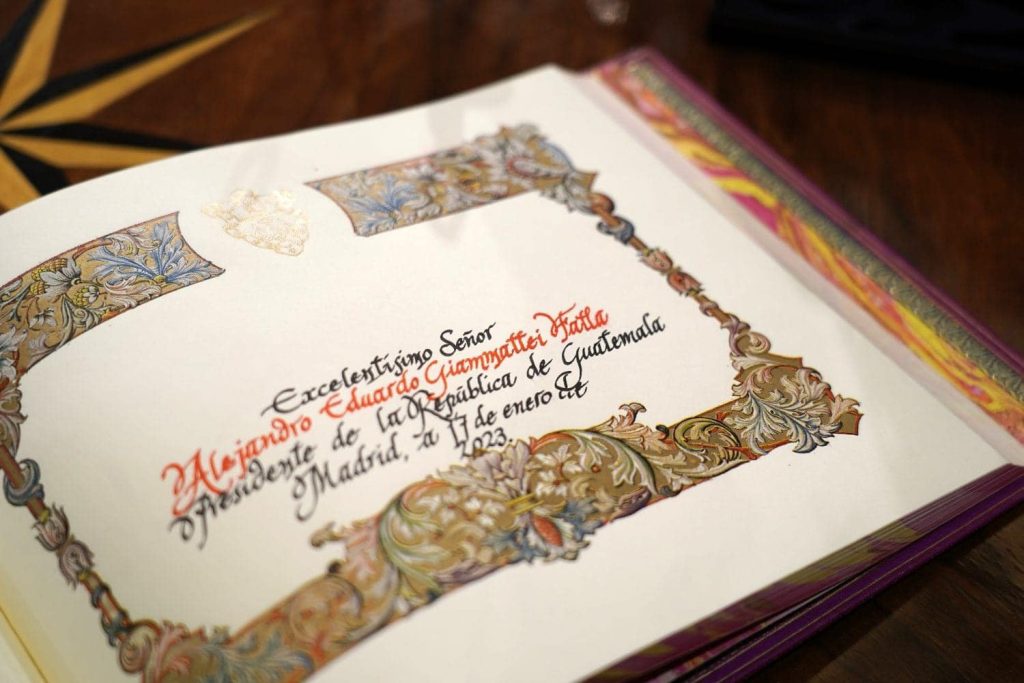 Excelentísimo Señor
Alejandro Eduardo Giammattei Falla
Presidente de la República de Guatemala
Madrid, a 17 de enero de
2023.